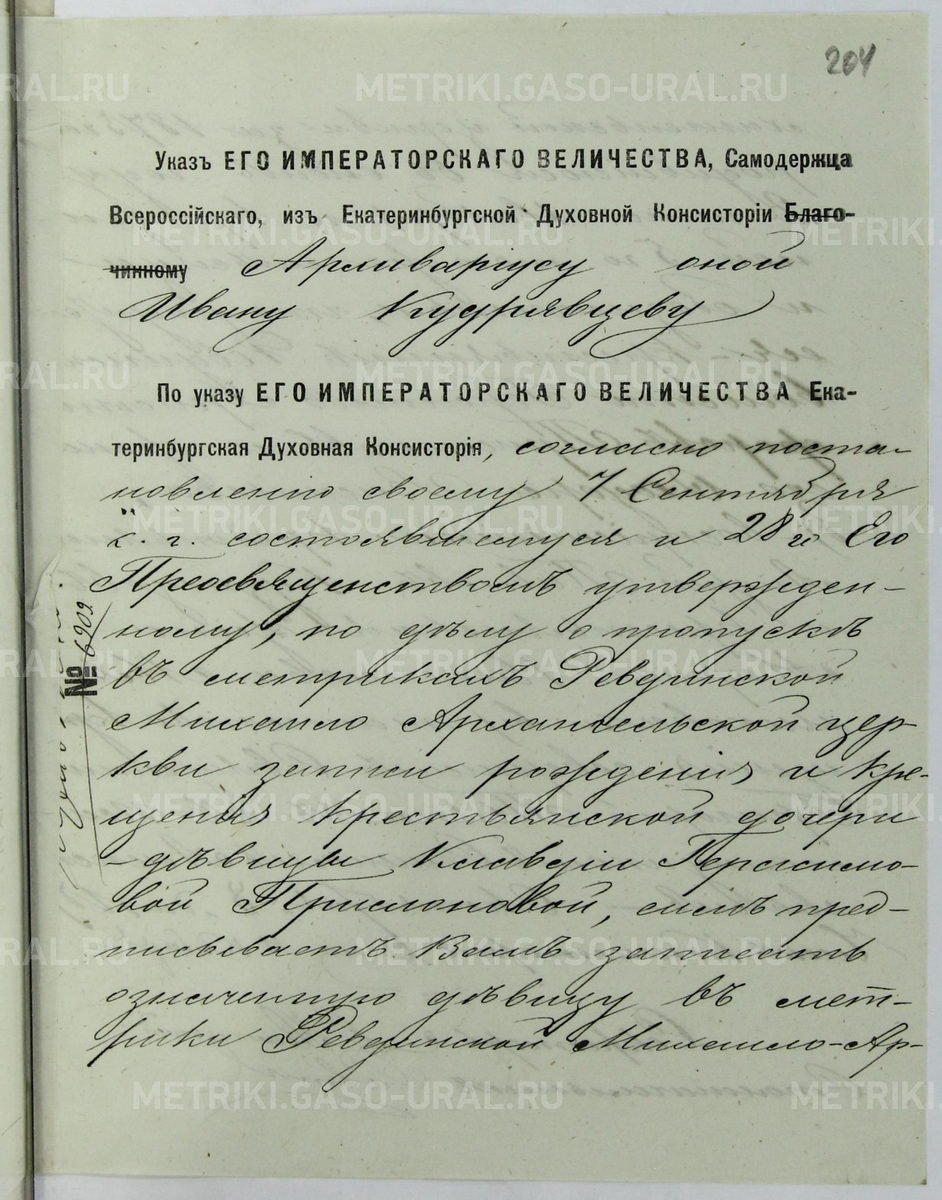 204
Указъ ЕГО ИМПЕРАТОРСКАГО ВЕЛИЧЕСТВА, Самодержца
Всероссійскаго, изъ Екатеринбургской Духовной Консисторіи Благо-
чинному Архиваріусу оной
Ивану Кудрявцеву
По указу ЕГО ИМПЕРАТОРСКАГО ВЕЛИЧЕСТВА Ека-
теринбургская Духовная Консисторія, согласно поста-
новленію своему 7 Сентября
с. г. состоявшемуся и 28го Его
Преосвященствомъ утвержден-
ному, по дѣлу о пропускѣ
въ метрикахъ Ревдинской
Михаило Архангельской цер-
кви записи рожденія и кре-
щенія крестьянской дочери
-дѣвицы Клавдіи Герасимо-
вой Прислоновой, симъ пред-
писываетъ Вамъ записать
означенную дѣвицу въ мет-
рики Ревдинской Михаило-Ар-
№ 6909
METRIKI.GASO-URAL.RU